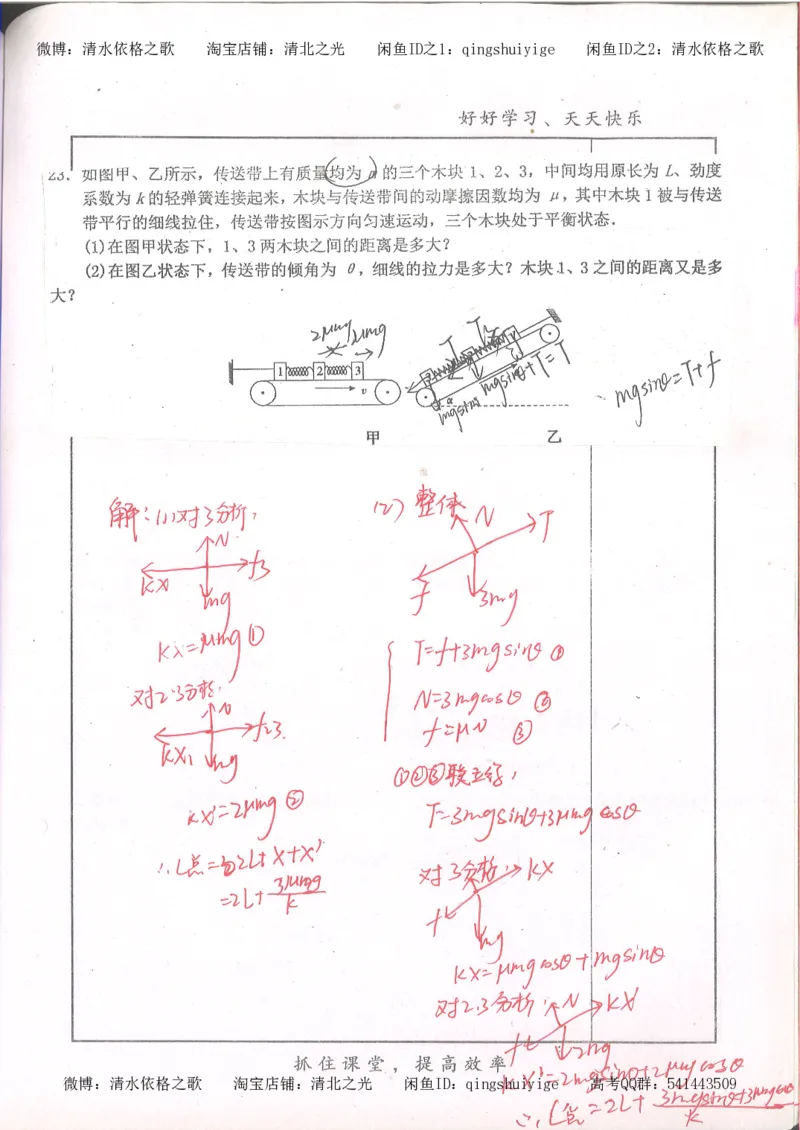 微博：清水依格之歌　　淘宝店铺：清北之光　　闲鱼ID之1：qingshuiyige　　闲鱼ID之2：清水依格之歌
好好学习、天天快乐
23. 如图甲、乙所示，传送带上有质量均为 m 的三个木块 1、2、3，中间均用原长为 L、劲度
系数为 k 的轻弹簧连接起来，木块与传送带间的动摩擦因数均为 μ，其中木块 1 被与传送
带平行的细线拉住，传送带按图示方向匀速运动，三个木块处于平衡状态．
(1)在图甲状态下，1、3 两木块之间的距离是多大？
(2)在图乙状态下，传送带的倾角为 θ，细线的拉力是多大？木块 1、3 之间的距离又是多
大？
2μmg μmg
1 2 3
v
mgsinθ+T=T
mgsinθ=T+f
甲
乙
解：(1)对3分析：
N
kx f3
mg
kx=μmg ①
对2.3分析：
N
kx, f23.
mg
kx'=2μmg ②
∴L总=2L+x+x'
=2L+3μmg/k
(2) 整体
N T
f 3mg
T=f+3mgsinθ ①
N=3mgcosθ ②
f=μN ③
①②③联立得；
T=3mgsinθ+3μmgcosθ
对3分析：
kx
f
mg
kx=μmgcosθ+mgsinθ
对2.3分析：
N kx'
f 2mg
kx'=2mgsinθ+2μmgcosθ
∴L总=2L+3mgsinθ+3μmgcosθ/k
抓住课堂，提高效率
微博：清水依格之歌　　淘宝店铺：清北之光　　闲鱼ID：qingshuiyige　　高考QQ群：541443509